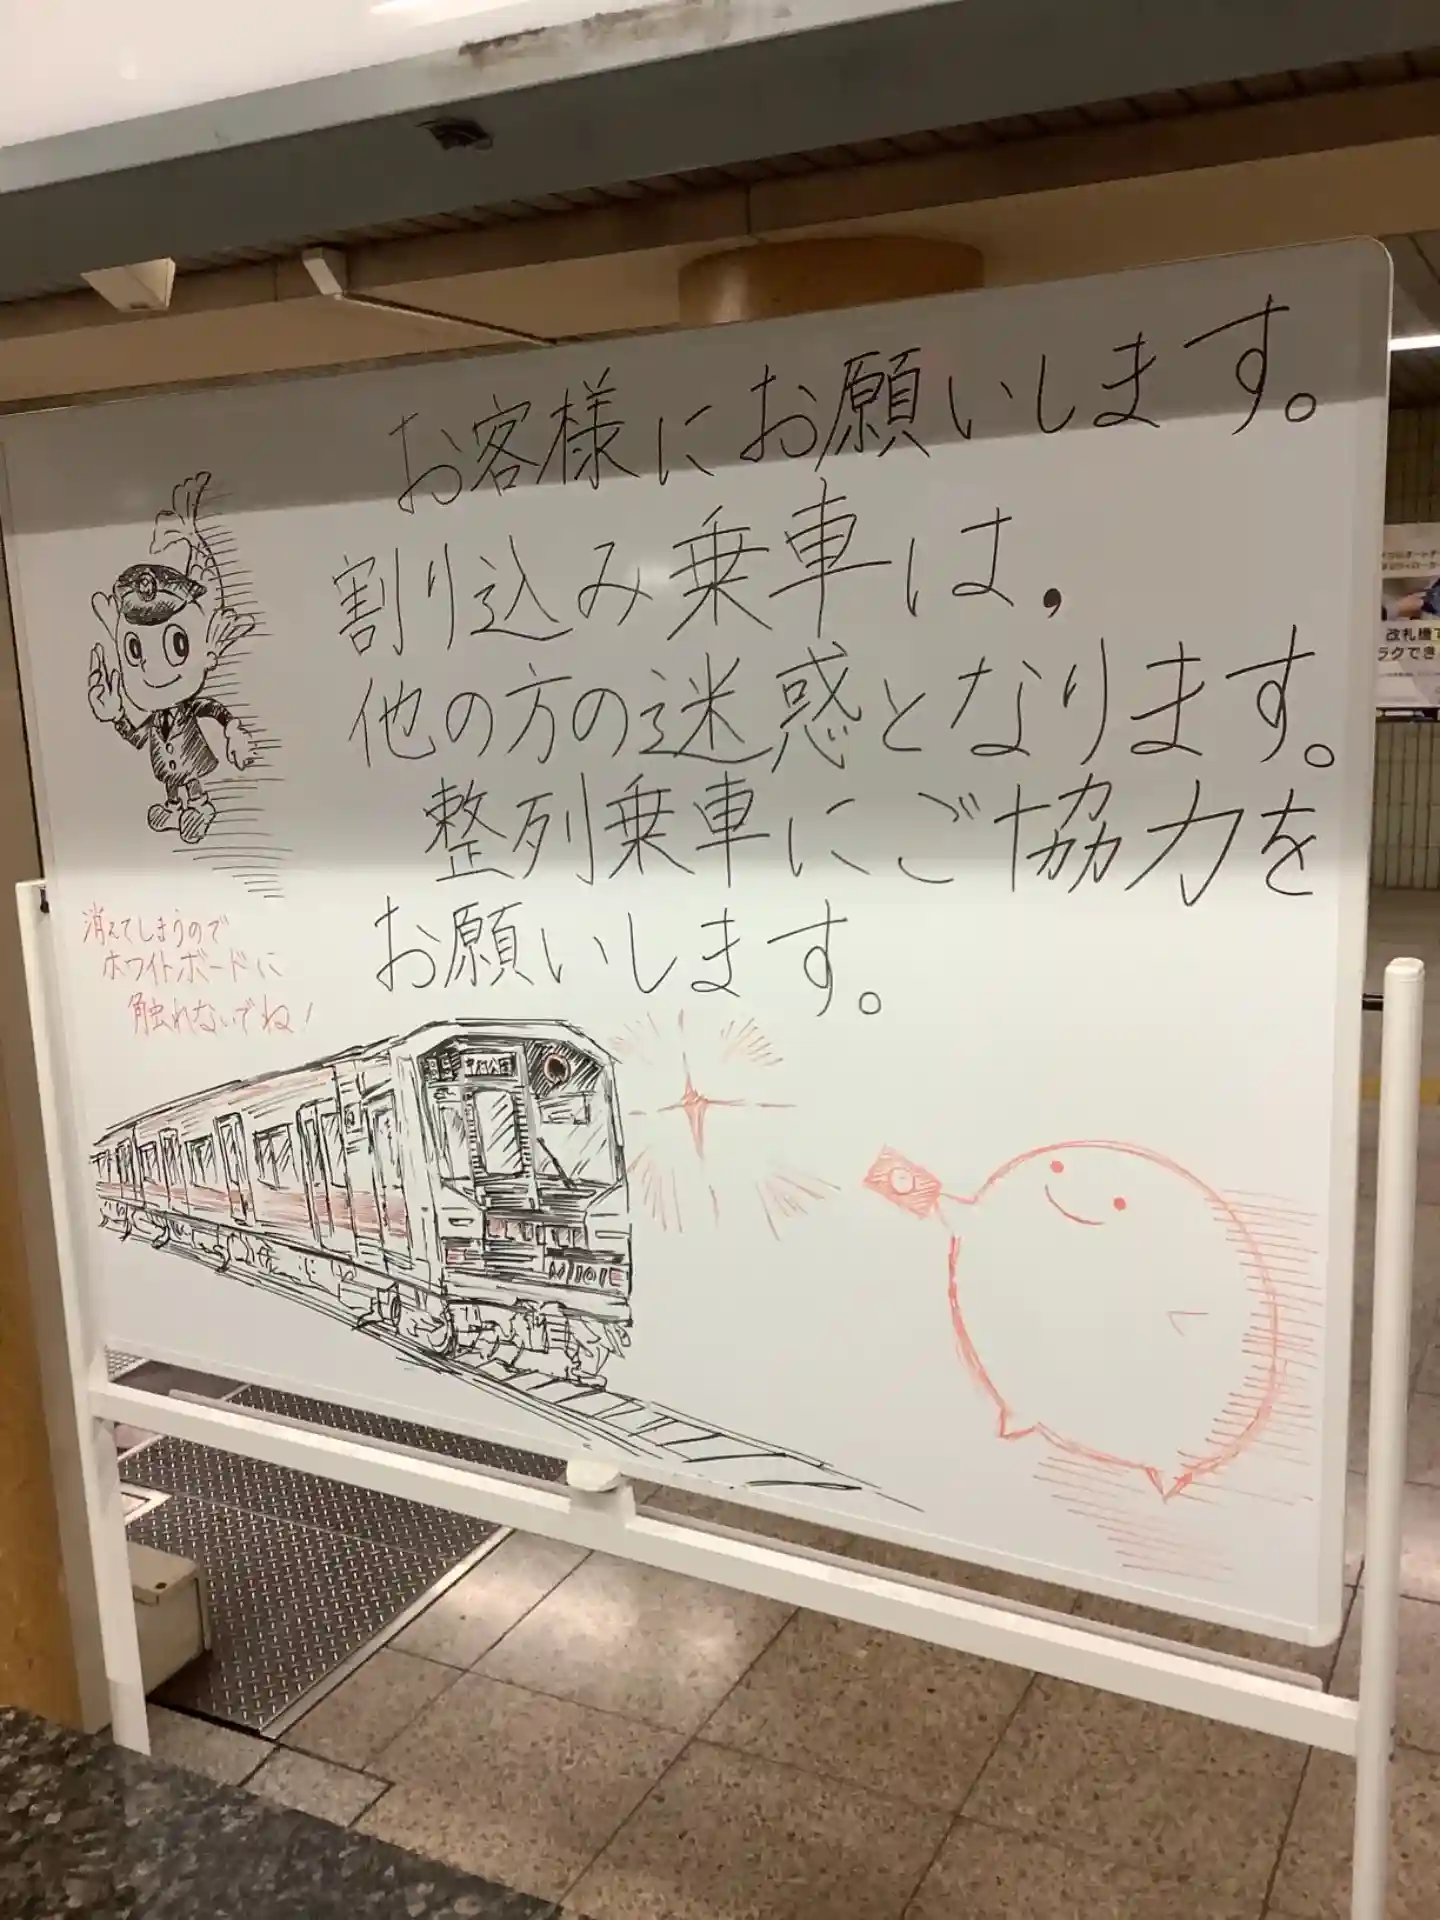 お客様にお願いします。
割り込み乗車は，
他の方の迷惑となります。
整列乗車にご協力を
お願いします。
消えてしまうので
ホワイトボードに
触れないでね！
改札機で
ラクでき